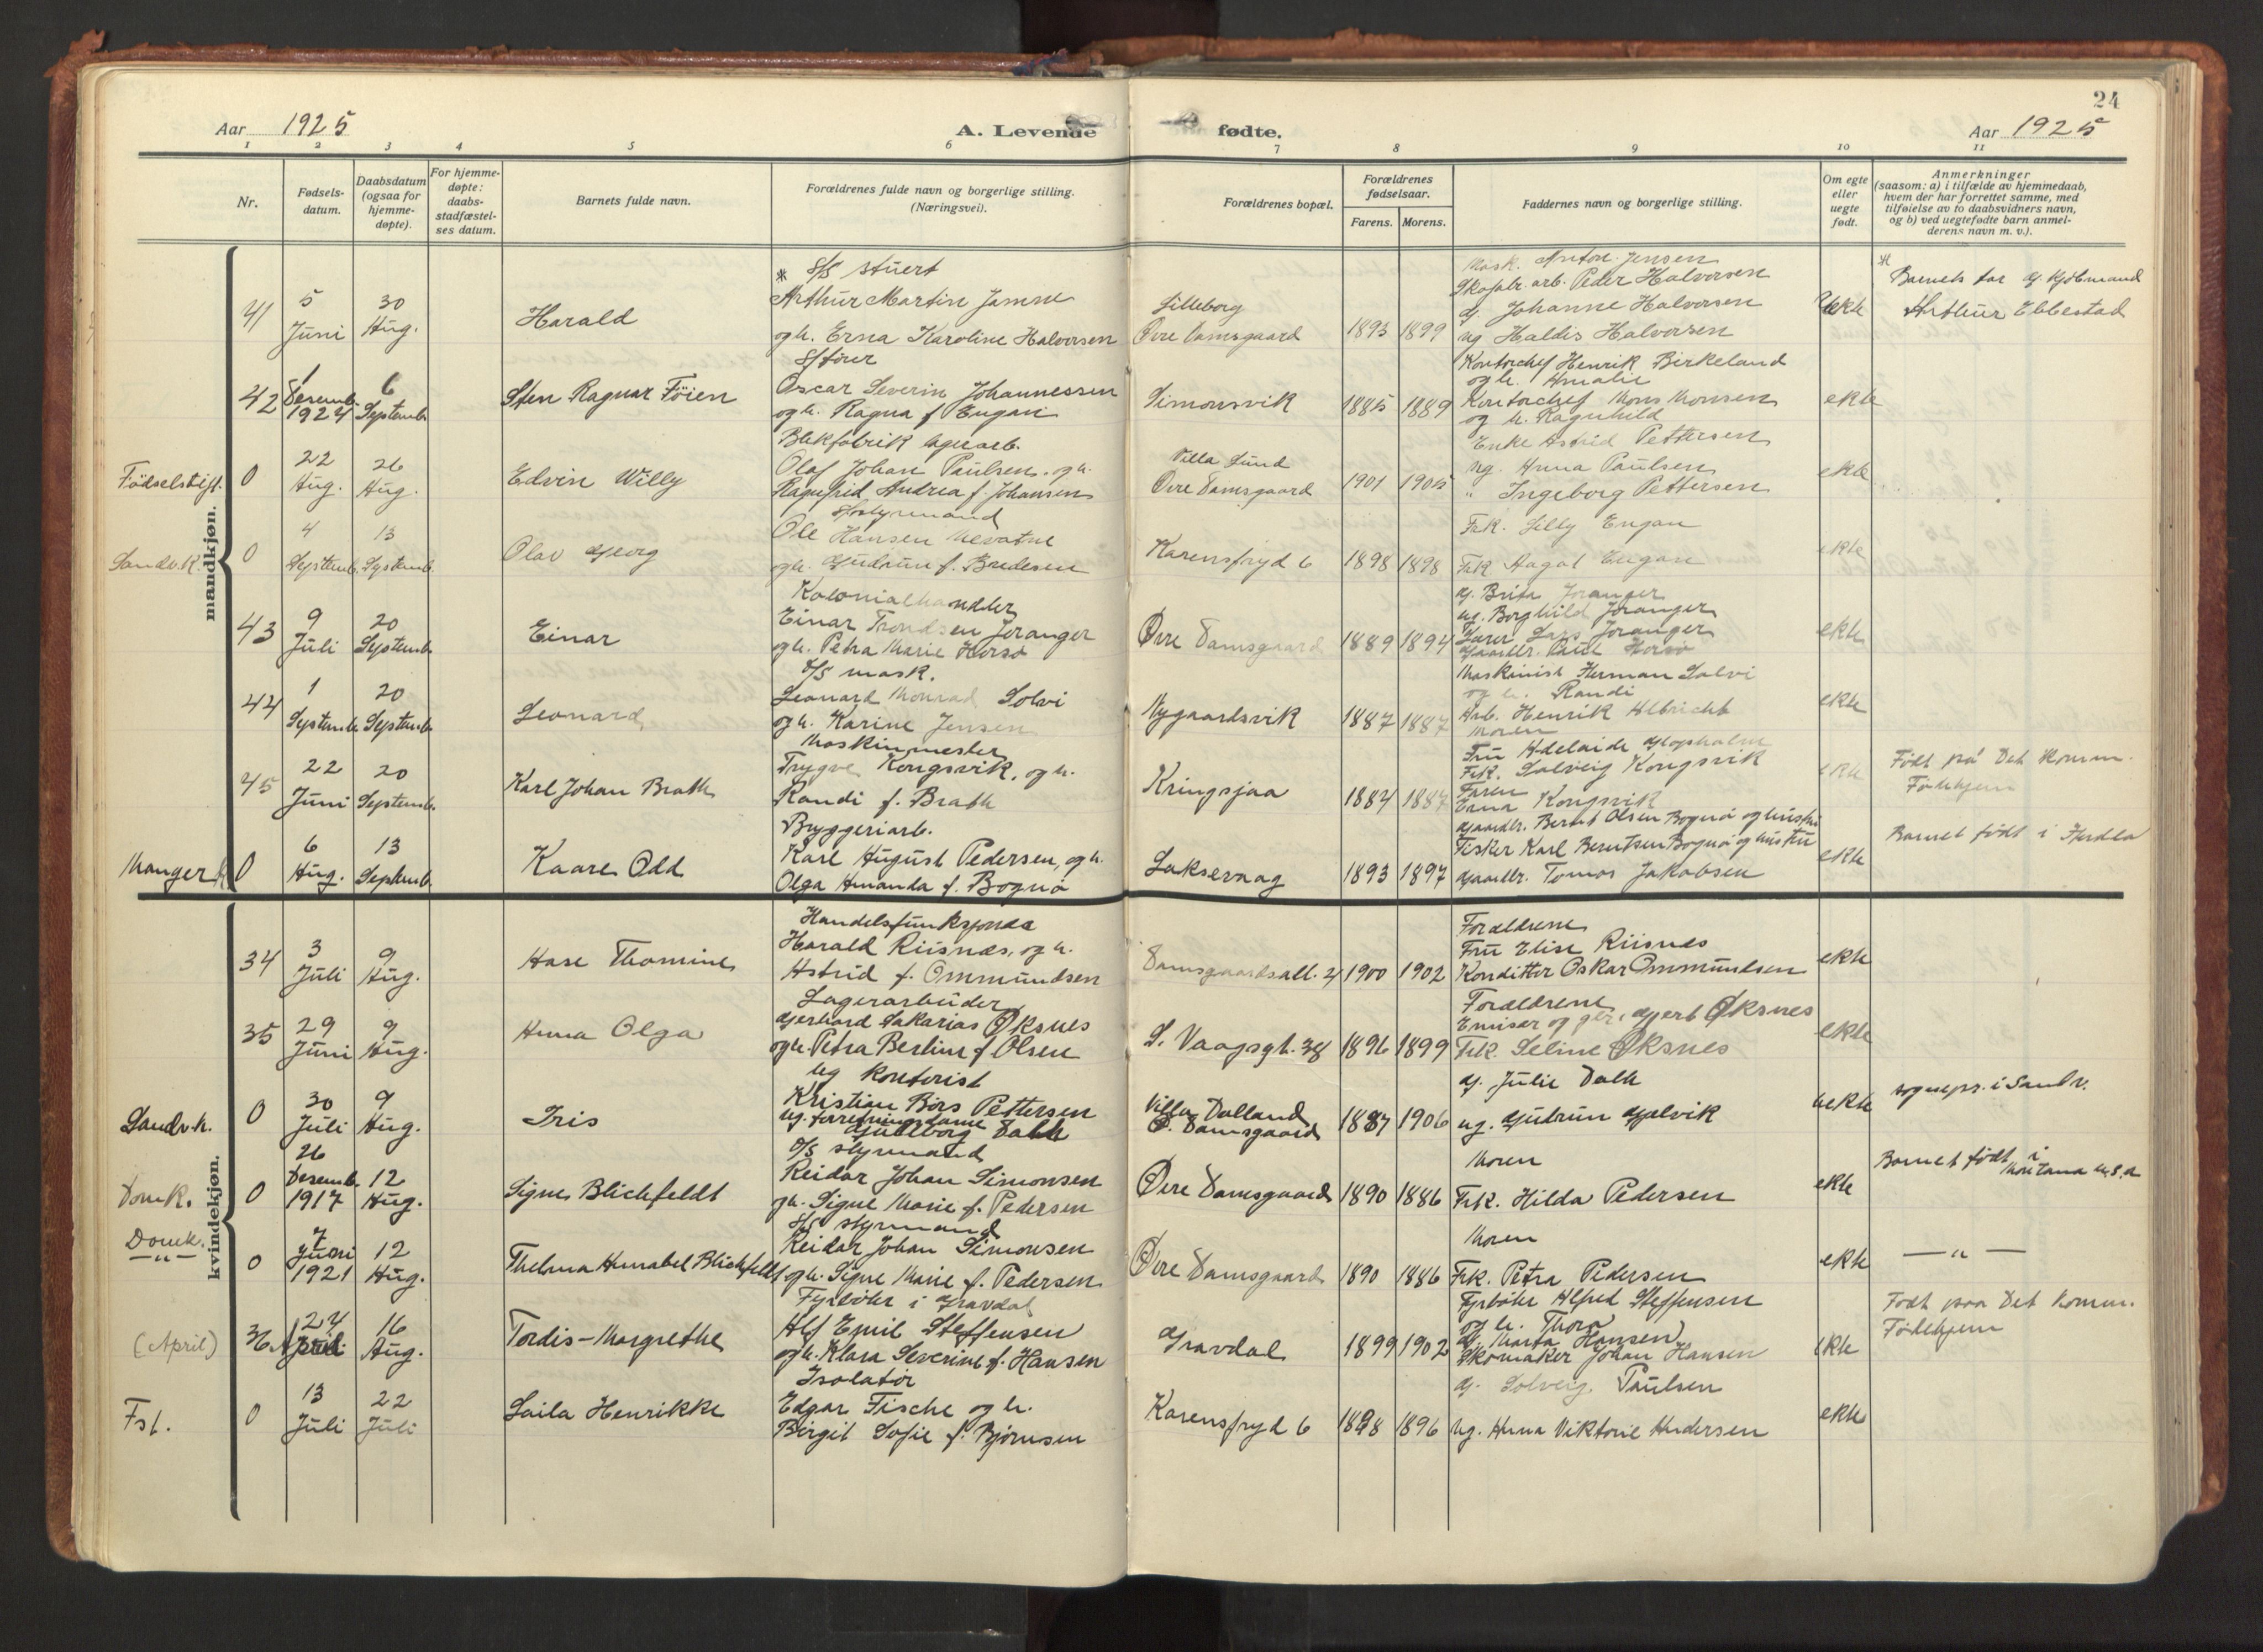 24
Aar 1925
A. Levende fødte.
Aar 1925
1 2 3 4 5 6 7 8 9 10 11
Nr.
Fødsels-
datum.
Daabsdatum
(ogsaa for
hjemme-
døpte).
For hjemme-
døpte:
daabs-
stadfæstel-
ses datum.
Barnets fulde navn.
Forældrenes fulde navn og borgerlige stilling.
(Næringsvei).
Forældrenes bopæl.
Forældrenes
fødselsaar.
Farens. Morens.
Faddernes navn og borgerlige stilling.
Om egte
eller
uegte
født.
Anmerkninger
(saasom: a) i tilfælde av hjemmedaab,
hvem der har forrettet samme, med
tilføielse av to daabsvidners navn,
og b) ved uegtefødte barn anmel-
derens navn m. v.).
mandkjøn.
41
5
Juni
30
Aug.
Harald
* S/S stuert
Arthur Martin
og h. Erna Karoline Halvorsen
Lilleborg
Øvre Damsgaard
1893 1899
Mask. Anton Jensen
Skofabr. arb. Peder Halvorsen
g. Johanne Halvorsen
ug Haldis Halvorsen
ekte
* Barnets far g. Kjøbmand
Arthur Ebbestad
42
1
Desemb.
1924
6
Septemb.
Sten Ragnar Föien
Oscar Severin Johannessen
og h. Ragna f Engan
Simonsvik
1885 1889
Kontorchef Henrik Birkeland
og h. Amalie
Kontorchef Mons Monsen
og h. Ragnhild
ekte
Födselstift.
0
22
Aug.
26
Aug.
Edvin Willy
Blikfabrik lagerarb.
Olaf Johan Paulsen og h.
Ragnfrid Andrea f. Johansen
Villa Lund
Övre Damsgaard
1901 1905
Enke Astrid Pettersen
ug. Anna Paulsen
" Ingeborg Pettersen
ekte
Sandv.k.
0
4
Septemb.
13
Septemb.
Olav Georg
S/S styrmand
Ole Hansen
og h. Gudrun f. Bredesen
Karensfryd 6
1898 1898
Frk. Lilly Engan
Frk Aagot Engan
ekte
43
9
Juli
20
Septemb.
Einar
Kolonialhandler
Einar Trondsen Joranger
og h. Petra Marie Horsö
Övre Damsgaard
1889 1894
g. Brita Joranger
ug. Borghild Joranger
Lars Joranger
Gaardbr. Paul Horsö
ekte
44
1
Septemb.
20
Septemb.
Leonard
S/S mask.
Leonard Monrad Solvi
og h. Karine Jensen
Nygaardsvik
1887 1887
Maskinist Herman Solvi
og h. Randi
Arb. Henrik Albricht
Moren
ekte
45
22
Juni
20
Septemb.
Karl Johan Brath
Maskinmester
Trygve Kongsvik, og h.
Randi f. Brath
Kringsjaa
1884 1887
Fru Adelaide
Frk. Solveig Kongsvik
Faren
Kongsvik
ekte
Født på Det Komm.
Fødehjem
Manger
0
6
Aug.
13
Septemb.
Kaare Odd
Bryggeriarb.
Karl August Pedersen, og h.
Olga Amanda f. Bognö
Laksevaag
1893 1897
Gaardbr. Bernt Olsen Bognö og hustru
Fisker Karl Berntsen Bognö og hustru
Gaardbr. Tomas Jakobsen
ekte
Barnet født i Herdla
kvindekjøn.
34
3
Juli
9
Aug.
Aase Thomine
Handelsfunksjonær
Harald Riisnæs, og h.
Astrid f. Ommundsen
Damsgaardsall. 24
1900 1902
Forældrene
Fru Elise Riisnes
Konditter Oskar Ommundsen
ekte
35
29
Juni
9
Aug.
Anna Olga
Lagerarbeider
Gerhard Sakarias Øksnes
og h. Petra Berline f Olsen
L. Vaagsgt. 38
1896 1899
Forældrene
Gjert Øksnes
Frk. Seline Øksnes
ekte
Sandv.k.
0
30
Juli
9
Aug.
Iris
ug kontorist
Kristian Börs Pettersen
ug. forretningsdame
Gudborg Dahl
Villa Dalland
Ø. Damsgaard
1887 1906
g. Julie Dahl
ug. Gudrun Gjelvik
uekte
sognepr. i Sandv.
Domk.
0
26
Desemb.
1917
12
Aug.
Signe Blichfeldt
S/S styrmand
Reidar Johan Simonsen
og h. Signe Marie f. Pedersen
Övre Damsgaard
1890 1886
Moren
Frk. Hilda Pedersen
ekte
Barnet født i
Montana U.S.A
Domk.
— " —
0
7
Juni
1921
12
Aug.
Thelma Annabel Blichfeldt
S/S styrmand
Reidar Johan Simonsen
og h. Signe Marie f. Pedersen
Övre Damsgaard
1890 1886
Moren
Frk. Petra Pedersen
ekte
— " —
(April)
36
24
April
16
Aug.
Tordis-Margrethe
Fyrböter i Gravdal
Alf Emil Steffensen
og h. Klara Severine f. Hansen
Gravdal
1899 1902
Fyrböter Alfred Steffensen
og h. Thora
g. Marta Hansen
Skomaker Johan Hansen
ekte
Født paa Det Komm.
Fødehjem
Fst.
0
13
Juli
22
Juli
Laila Henrikke
Isolatör
Edgar Fische og h.
Birgit Sofie f. Björnsen
Karensfryd 6
1898 1896
g. Solveig Paulsen
ug. Anna Viktorie Andersen
ekte